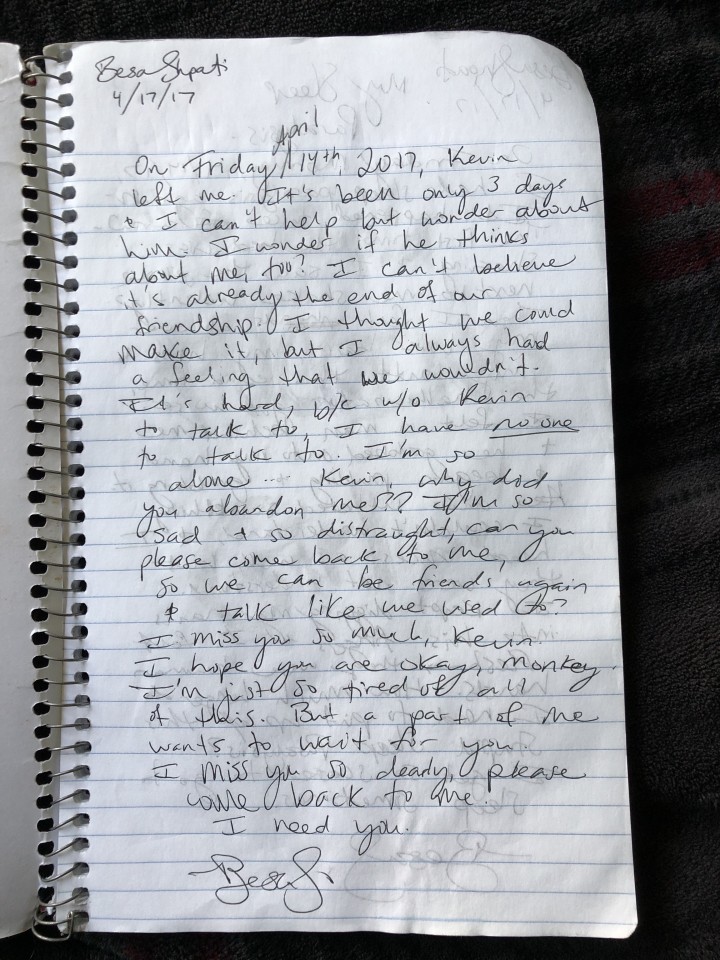 Besa Shpati
4/17/17
April
On Friday, 14th 2017, Kevin
left me. It's been only 3 days
& I can't help but wonder about
him. I wonder if he thinks
about me, too? I can't believe
it's already the end of our
friendship. I thought we could
make it, but I always had
a feeling that we wouldn't.
It's hard, b/c w/o Kevin
to talk to, I have no one
to talk to. I'm so
alone... Kevin, why did
you abandon me?? I'm so
sad + so distraught, can you
please come back to me,
so we can be friends again
& talk like we used to?
I miss you so much, Kevin.
I hope you are okay, monkey.
I'm just so tired of all
of this. But a part of me
wants to wait for you.
I miss you so dearly, please
come back to me.
I need you.
Besa S.